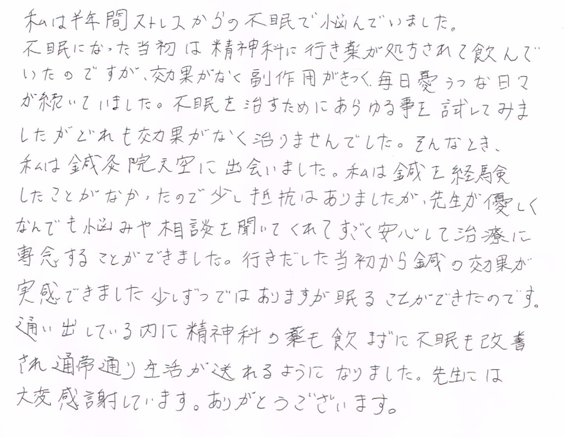 私は半年間ストレスからの不眠で悩んでいました。
不眠になった当初は精神科に行き薬が処方されて飲んで
いたのですが、効果がなく副作用がきつく、毎日憂うつな日々
が続いていました。不眠を治すためにあらゆる事を試してみま
したがどれも効果がなく治りませんでした。そんなとき、
私は鍼灸院天空に出会いました。私は鍼を経験
したことがなかったので少し抵抗はありましたが、先生が優しく
なんでも悩みや相談を聞いてくれてすごく安心して治療に
専念することができました。行きだした当初から鍼の効果が
実感できました少しずつではありますが眠ることができたのです。
通い出している内に精神科の薬も飲まずに不眠も改善
され通常通り生活が送れるようになりました。先生には
大変感謝しています。ありがとうございます。